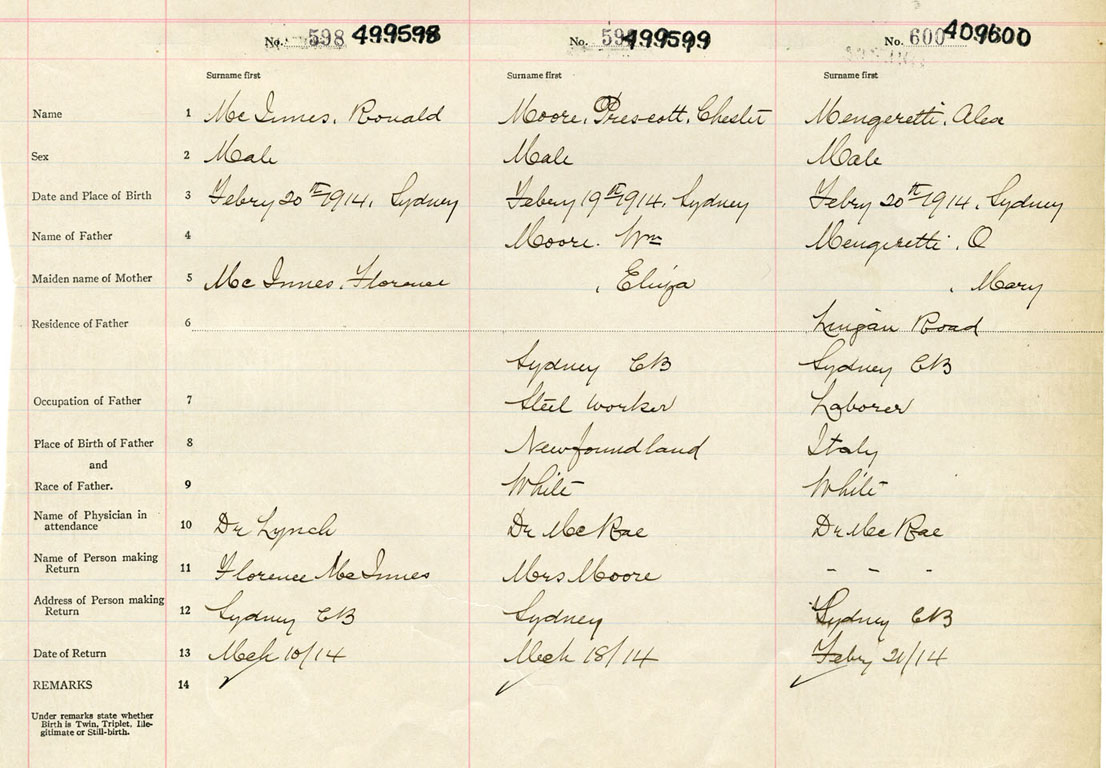 No. 598 499598 No. 599 499599 No. 600 409600
Surname first Surname first Surname first
Name 1 McInnes, Ronald Moore, Prescott, Chester Mengeretti, Alea
Sex 2 Male Male Male
Date and Place of Birth 3 Febry 20th 1914, Sydney Febery 19th 1914, Sydney Febry 20th 1914, Sydney
Name of Father 4 Moore. Wm Mengeretti, O
Maiden name of Mother 5 McInnes, Florence , Eliza , Mary
Residence of Father 6 Road
Sydney CB Sydney CB
Occupation of Father 7 Steel worker Laborer
Place of Birth of Father 8 Newfoundland Italy
and
Race of Father. 9 White White
Name of Physician in
attendance 10 Dr Lynch Dr McRae Dr McRae
Name of Person making
Return 11 Florence McInnes Mrs Moore - - -
Address of Person making
Return 12 Sydney CB Sydney Sydney CB
Date of Return 13 Mch 10/14 Mch 18/14 Febry 21/14
REMARKS 14
Under remarks state whether
Birth is Twin, Triplet, Ille-
gitimate or Still-birth.